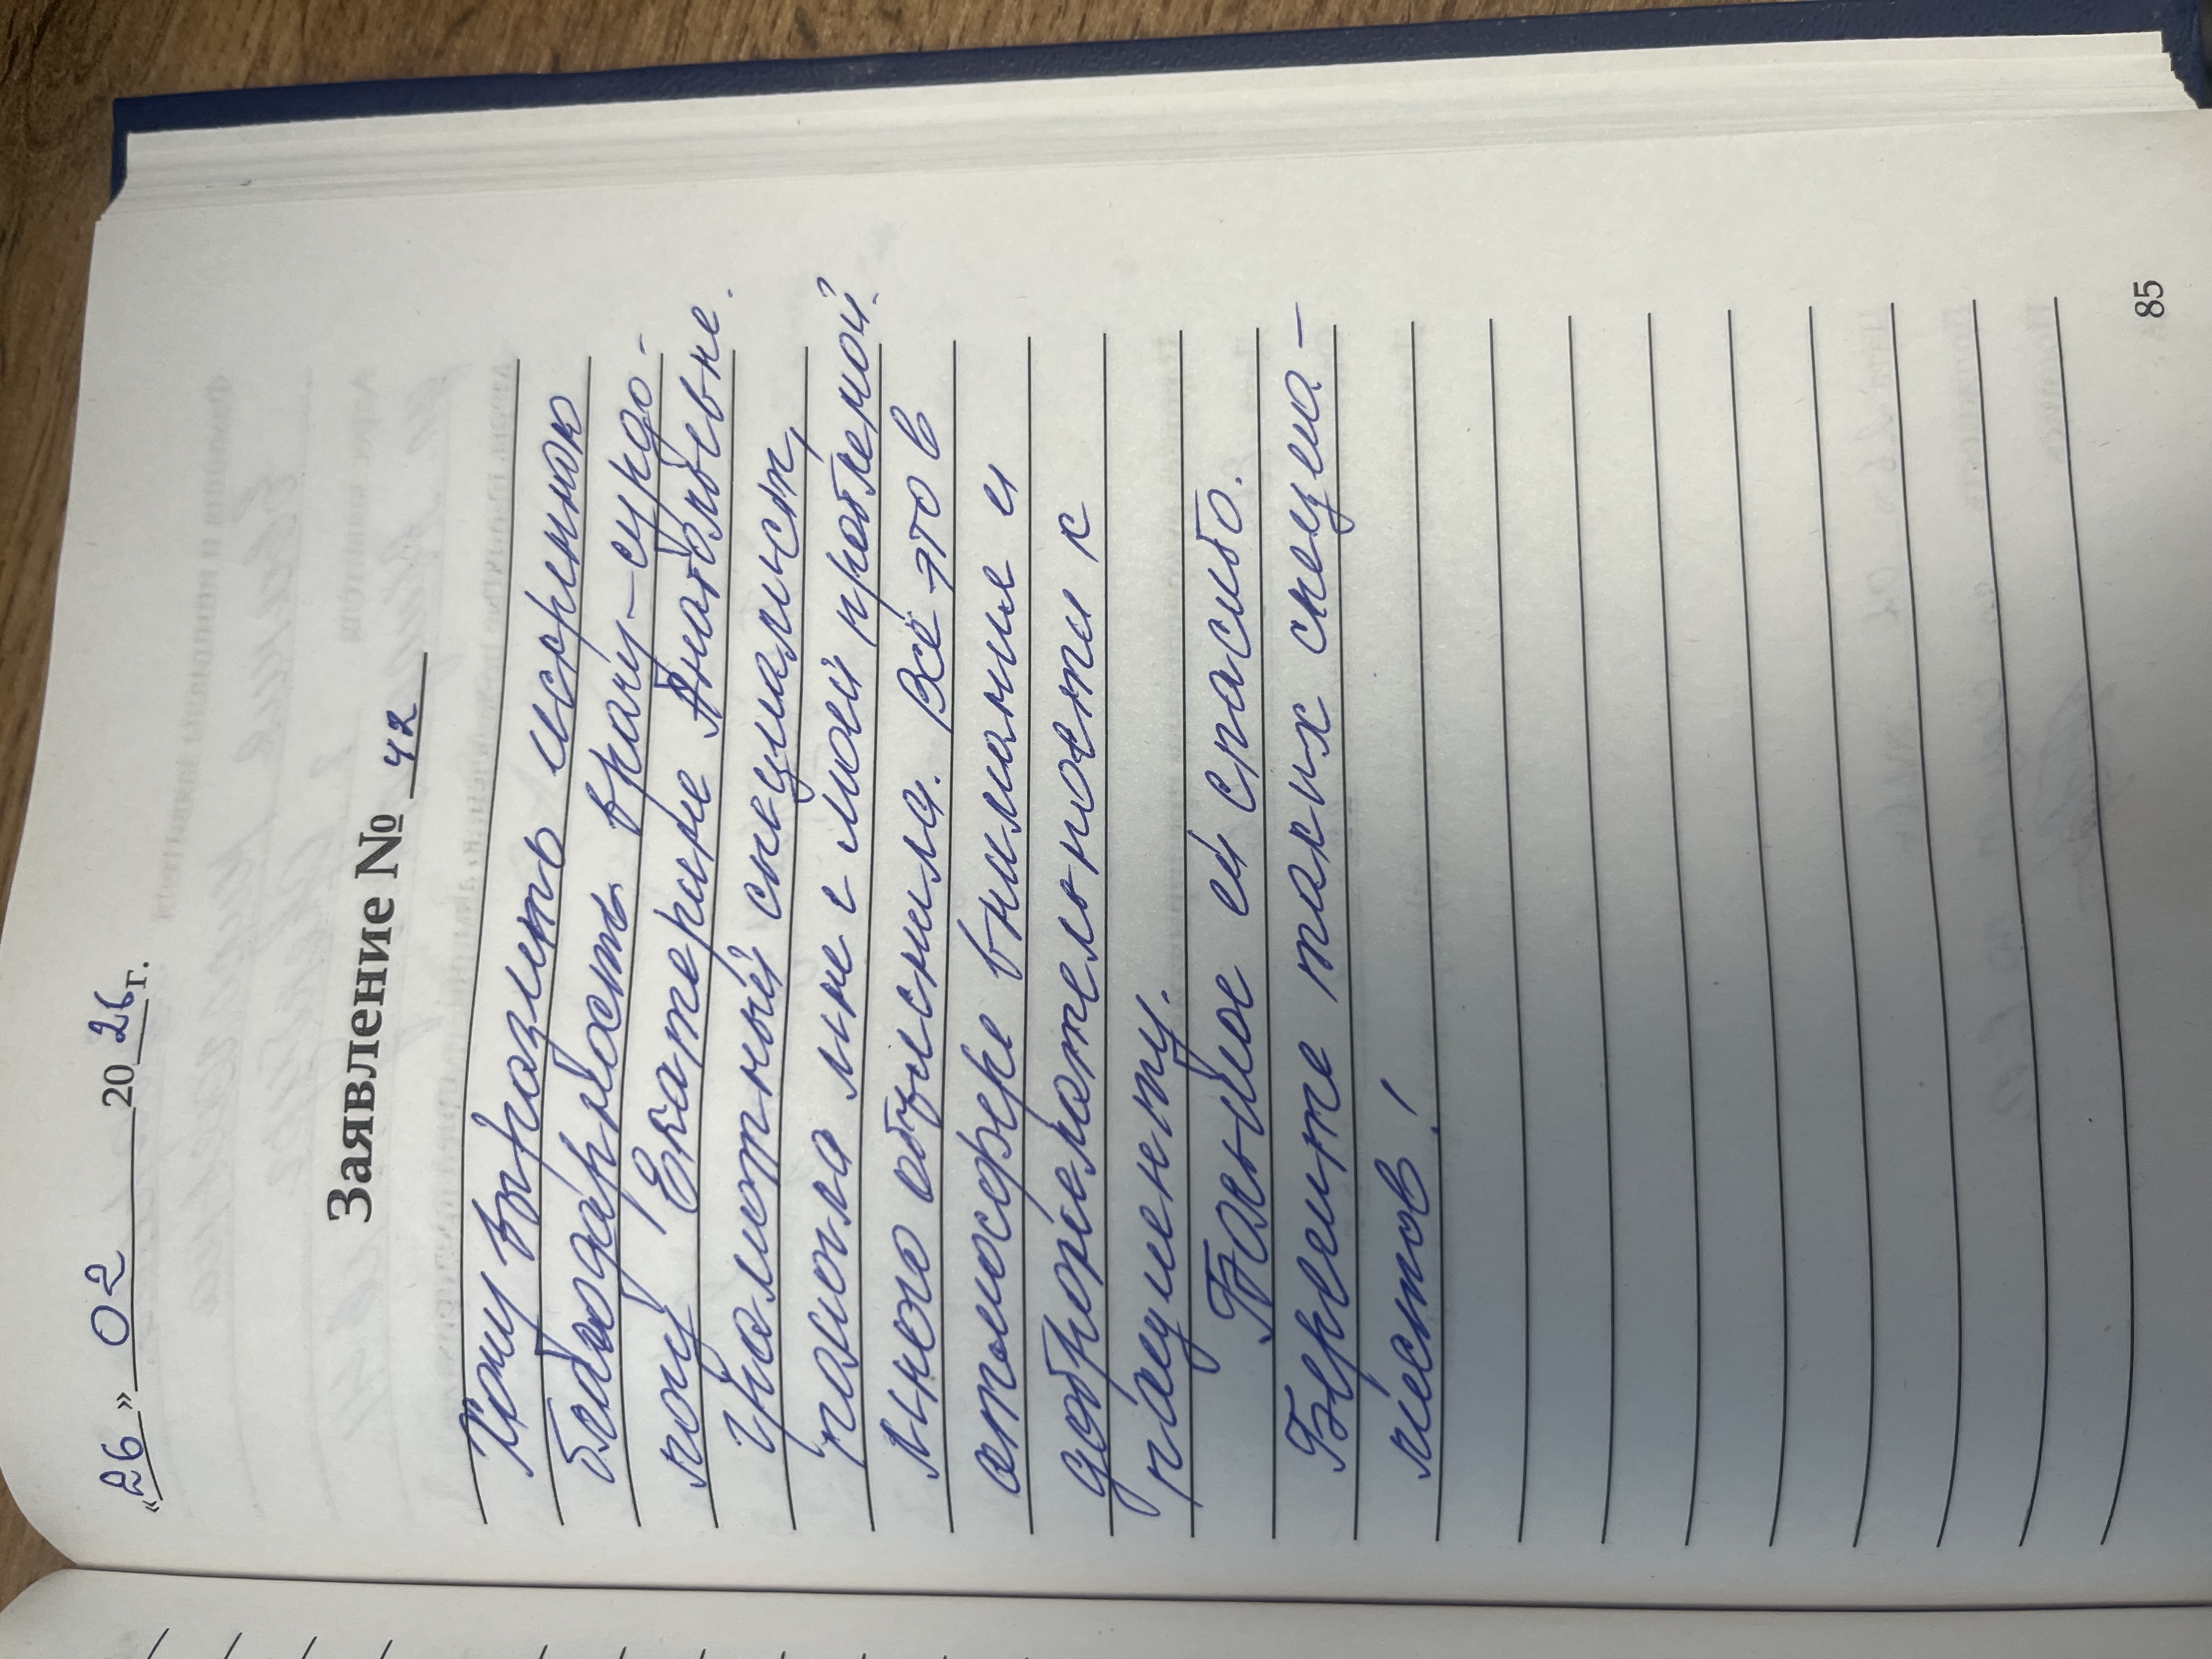 «26» 02 2026 г.
Заявление № 42
Хочу выразить искреннюю
благодарность врачу-сурдо-
логу Екатерине Анатольевне.
Грамотный специалист,
помогла мне с моей проблемой.
Много объяснила. Всё это в
атмосфере внимания и
доброжелательности к
пациенту.
Большое ей спасибо.
Берегите таких специа-
листов!
85